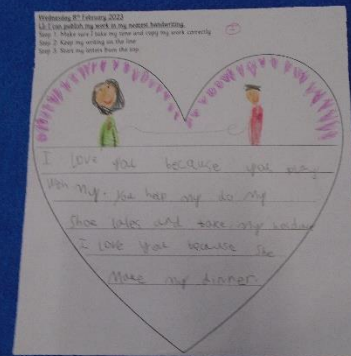 Wednesday 8th February 2023
LI: I can publish my work in my neatest handwriting.
Step 1: Make sure I take my time and copy my work correctly
Step 2: Keep my writing on the line
Step 3: Start my letters from the top.
I Love you because you play
With my. You help my do my
Shoe laces and take my
I Love you because She
Make my dinner